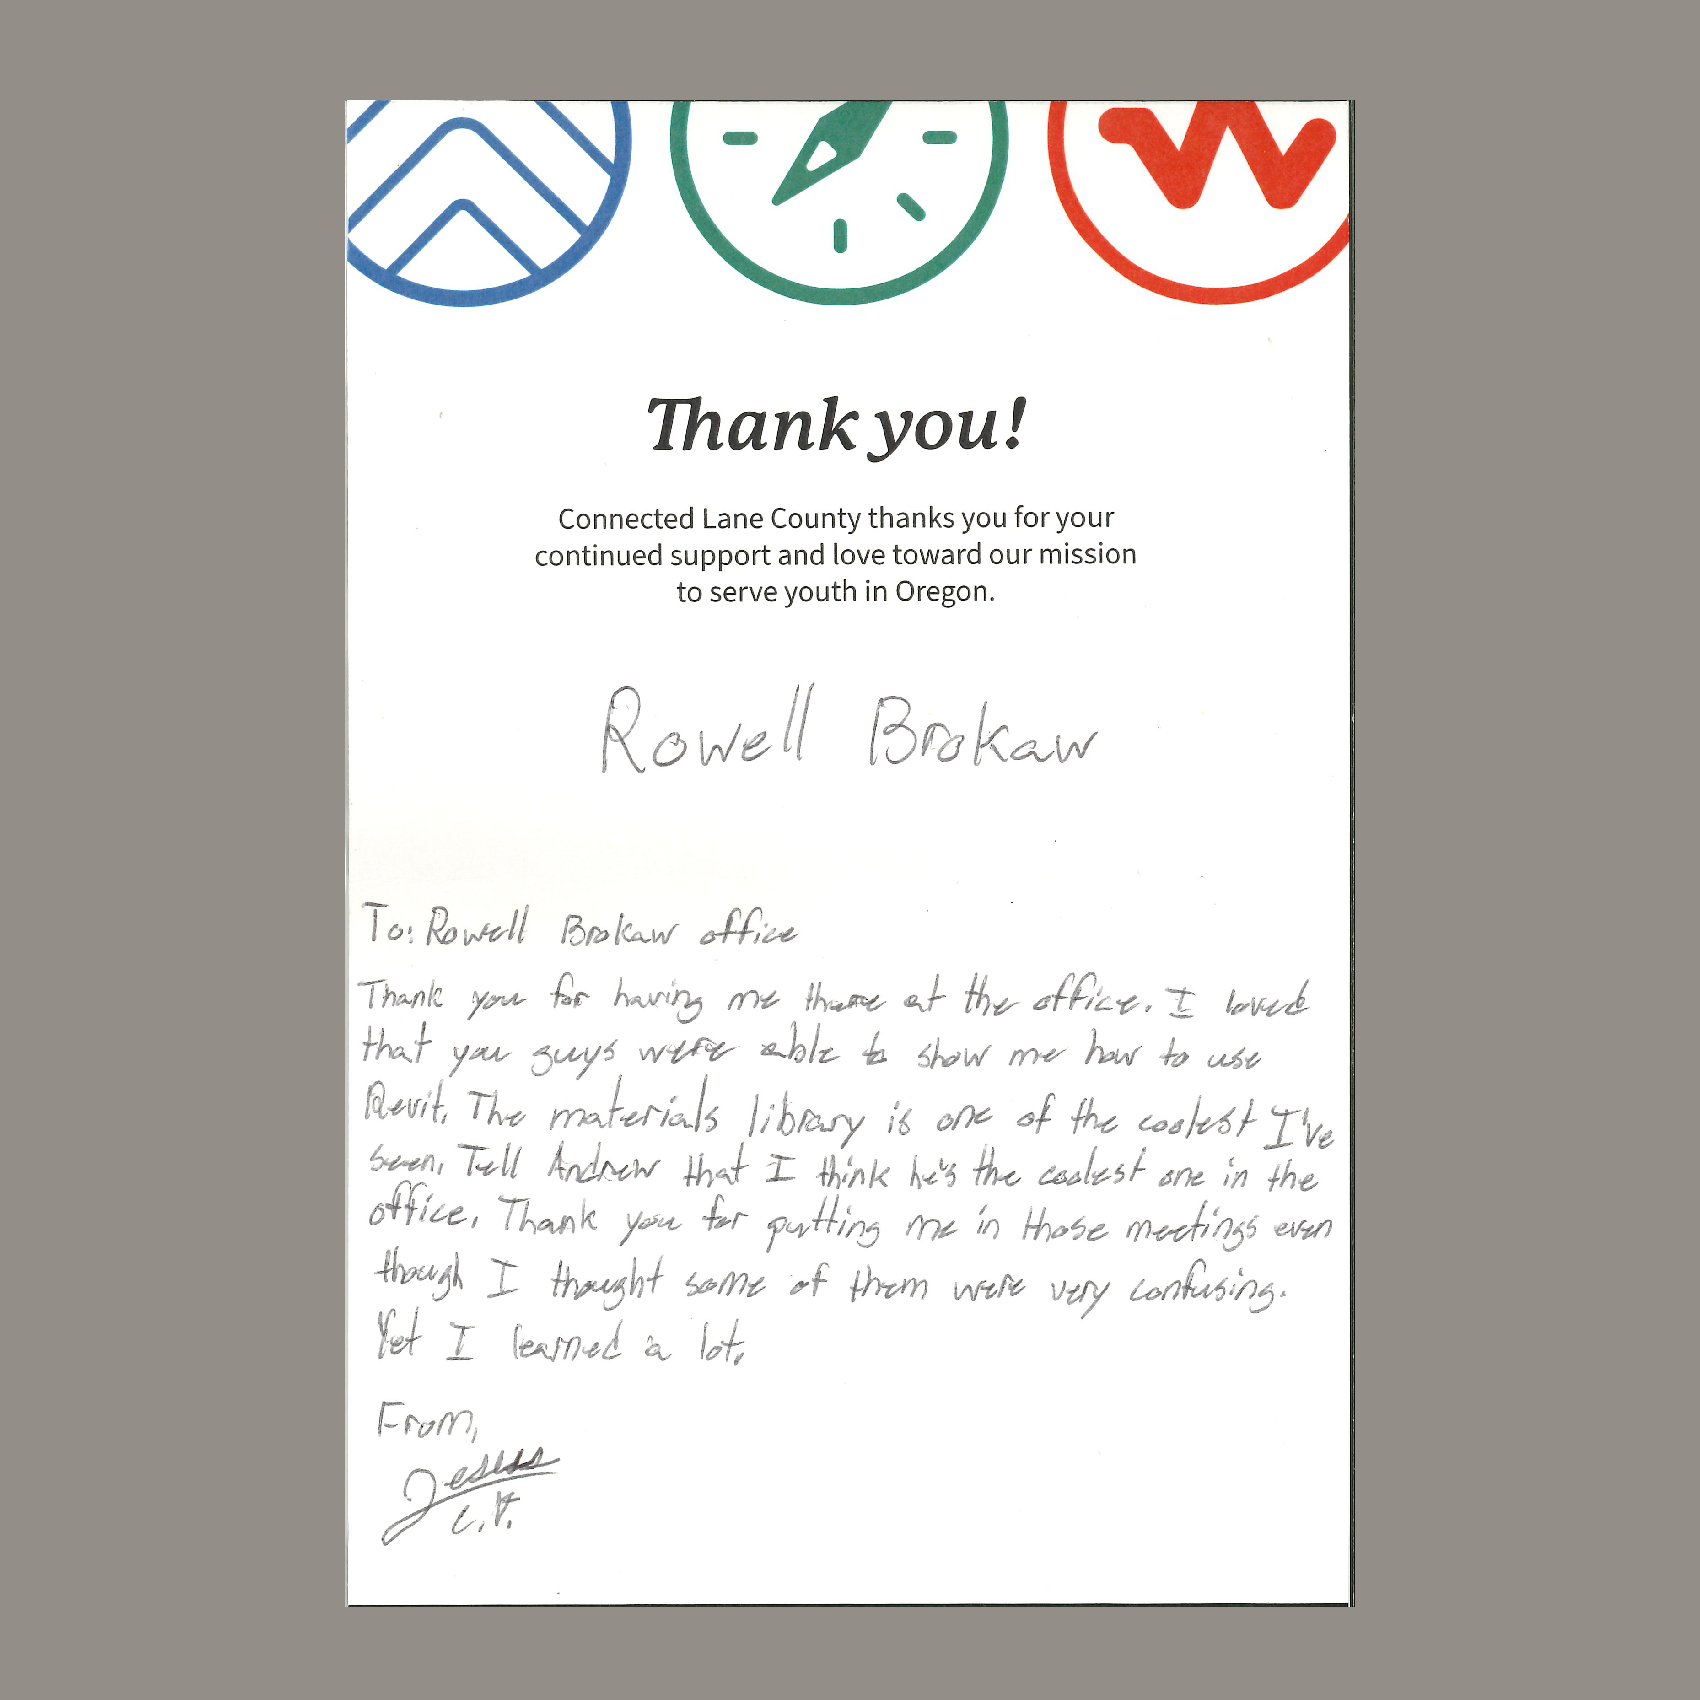 Thank you!
Connected Lane County thanks you for your
continued support and love toward our mission
to serve youth in Oregon.
Rowell Brokaw
To: Rowell Brokaw office
Thank you for having me there at the office. I loved
that you guys were able to show me how to use
Revit. The materials library is one of the coolest I've
seen. Tell Andrew that I think he's the coolest one in the
office. Thank you for putting me in those meetings even
though I thought some of them were very confusing.
Yet I learned a lot.
From,
Jesus
C.V.